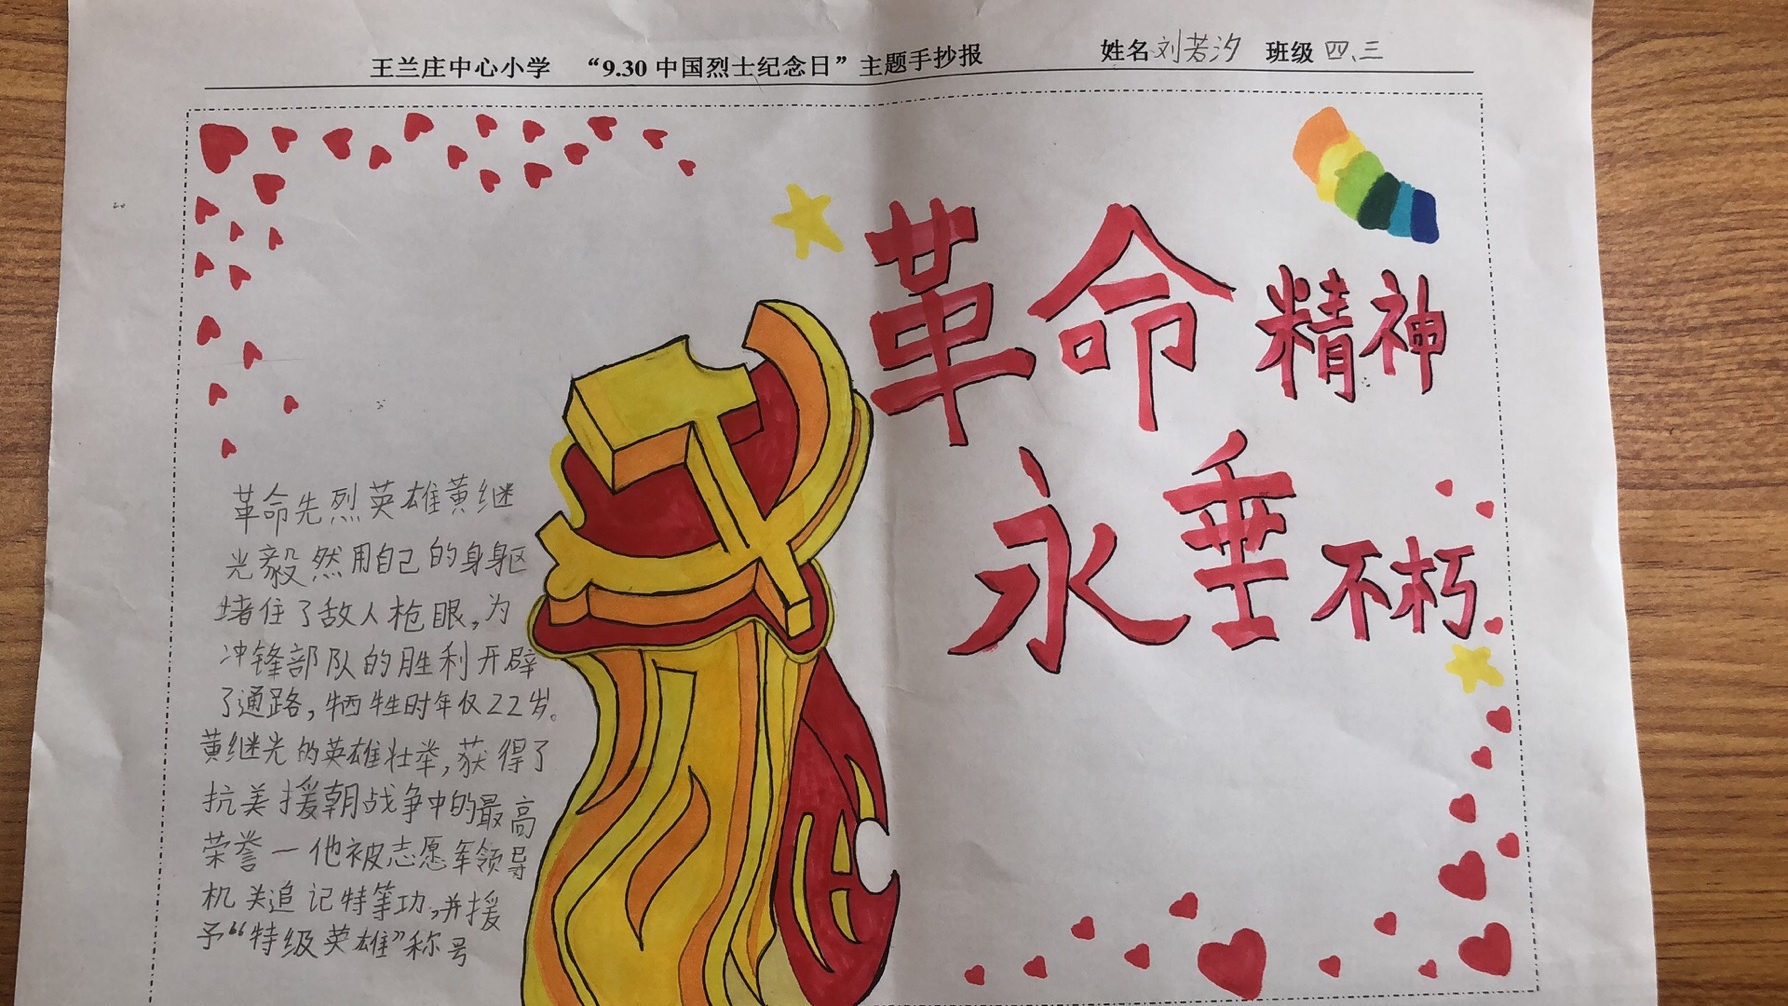 王兰庄中心小学 “9.30 中国烈士纪念日”主题手抄报 姓名 刘若汐 班级 四、三
革命精神
永垂不朽
革命先烈英雄黄继
光毅然用自己的身身区
堵住了敌人枪眼,为
冲锋部队的胜利开辟
了通路,牺牲时年仅22岁。
黄继光的英雄壮举,获得了
抗美援朝战争中的最高
荣誉一他被志愿军领导
机关追记特等功,并援
予“特级英雄”称号